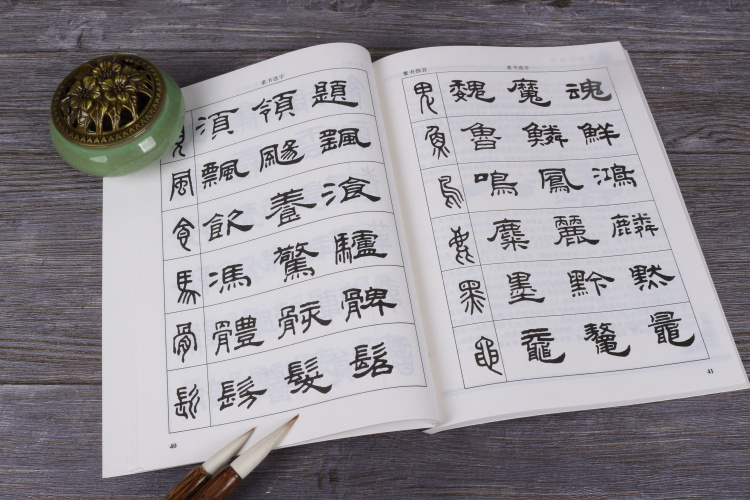 隶书选字
須 領 題
風 飄 颺
食 飲 養 湌
馬 馮 驚 驢
骨 體 骸 髀
髟 髣 髮
40
隶书选字
鬼 魏 魔 魂
魚 魯 鱗 鮮
鳥 鳴 鳳 鴻
鹿 麋 麗 麟
黑 墨 黔 默
黽 黿 鼇 鼂
41